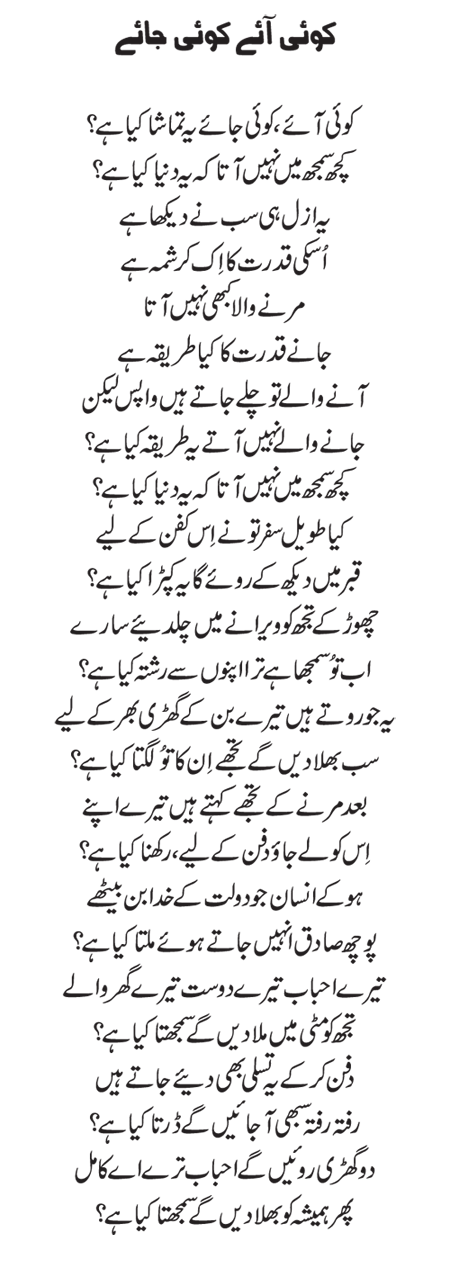 کوئی آئے کوئی جائے
کوئی آئے، کوئی جائے یہ تماشا کیا ہے؟
کچھ سمجھ میں نہیں آتا کہ یہ دنیا کیا ہے؟
یہ ازل ہی سب نے دیکھا ہے
اُسکی قدرت کا اِک کرشمہ ہے
مرنے والا کبھی نہیں آتا
جانے قدرت کا کیا طریقہ ہے
آنے والے تو چلے جاتے ہیں واپس لیکن
جانے والے نہیں آتے یہ طریقہ کیا ہے؟
کچھ سمجھ میں نہیں آتا کہ یہ دنیا کیا ہے؟
کیا طویل سفر تو نے اِس کفن کے لیے
قبر میں دیکھ کے روئے گا یہ کپڑا کیا ہے؟
چھوڑ کے تجھ کو ویرانے میں چلدیئے سارے
اب توُ سمجھا ہے ترا اپنوں سے رشتہ کیا ہے؟
یہ جو روتے ہیں تیرے بن کے گھڑی بھر کے لیے
سب بھلا دیں گے تجھے اِن کا توُ لگتا کیا ہے؟
بعد مرنے کے تجھے کہتے ہیں تیرے اپنے
اِس کو لے جاؤ دفن کے لیے، رکھنا کیا ہے؟
ہو کے انسان جو دولت کے خدا بن بیٹھے
پوچھ صادق انہیں جاتے ہوئے ملتا کیا ہے؟
تیرے احباب تیرے دوست تیرے گھر والے
تجھ کو مٹی میں ملا دیں گے سمجھتا کیا ہے؟
دفن کر کے یہ تسلی بھی دیئے جاتے ہیں
رفتہ رفتہ سبھی آ جائیں گے ڈرتا کیا ہے؟
دو گھڑی روئیں گے احباب ترے اے کامل
پھر ہمیشہ کو بھلا دیں گے سمجھتا کیا ہے؟